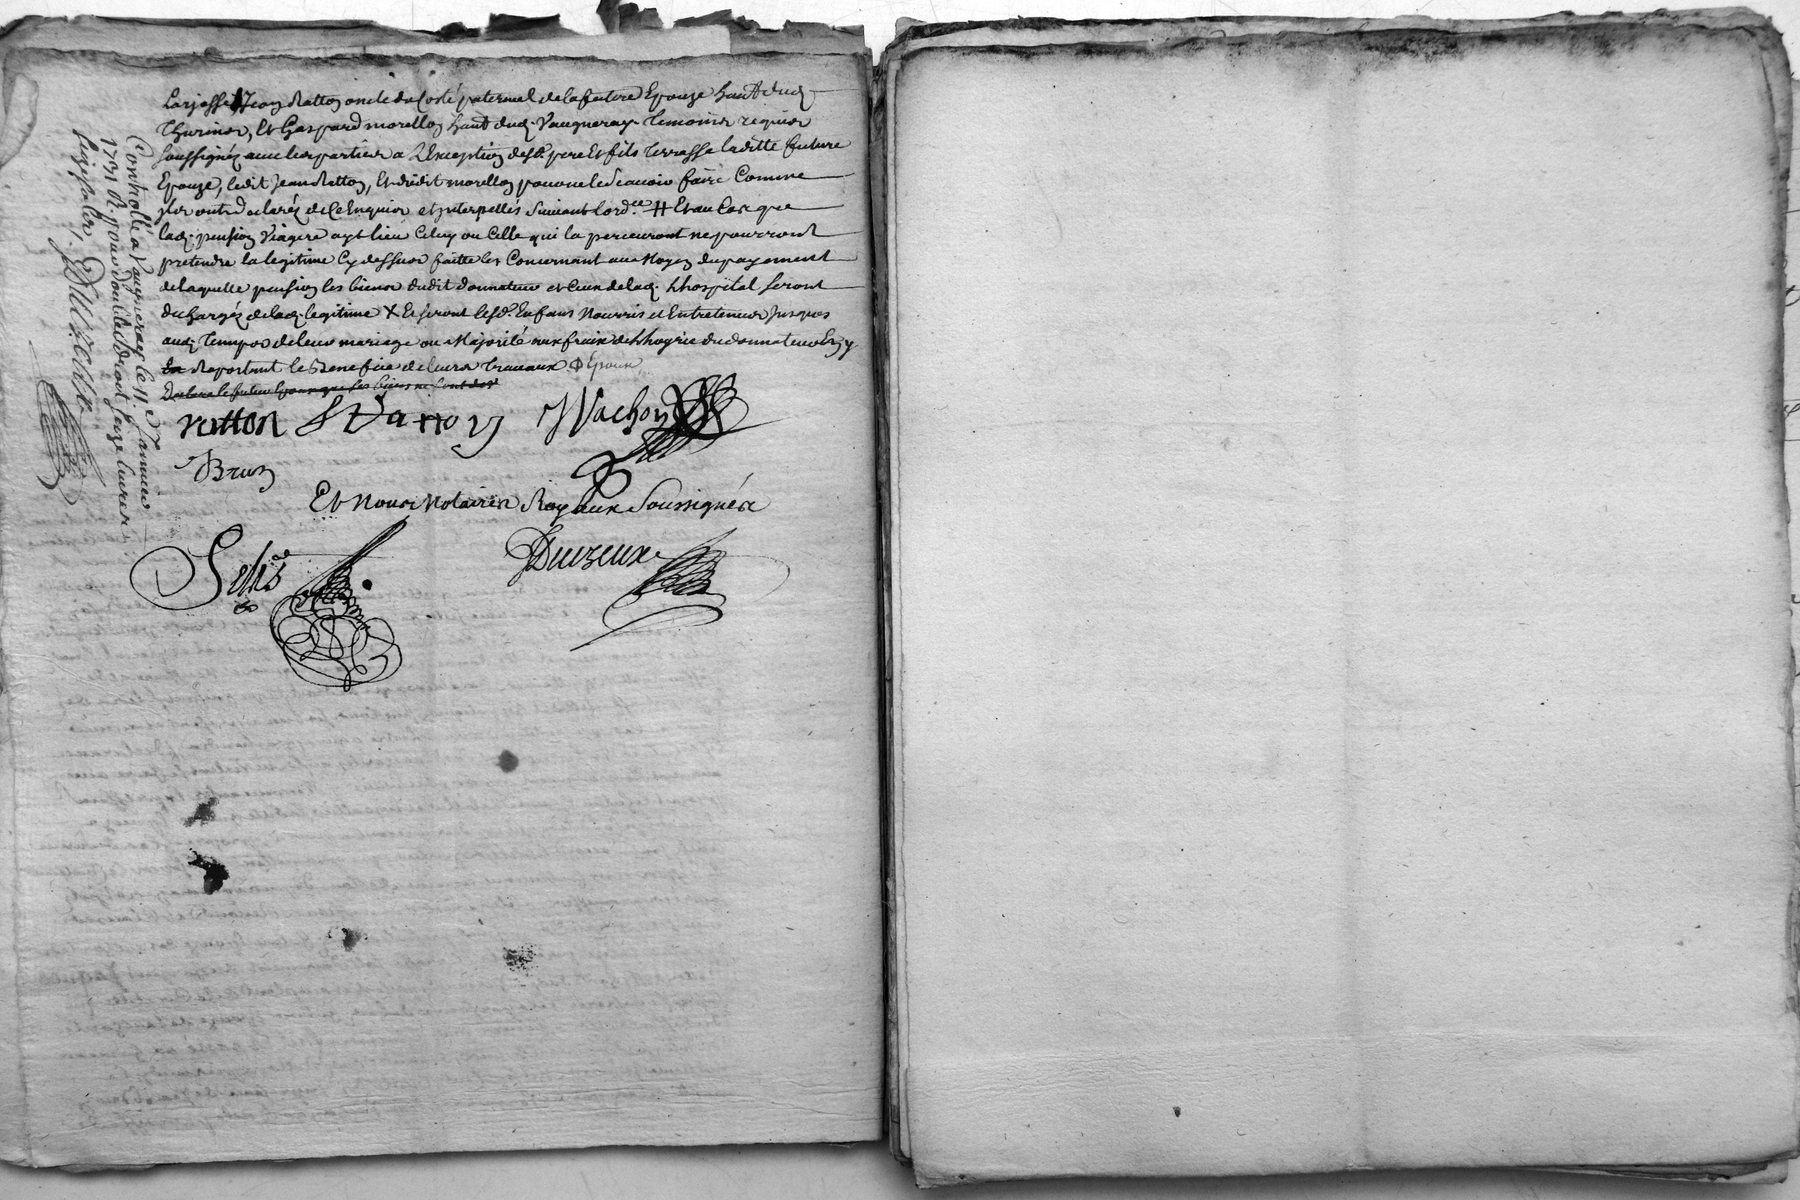 Larjasse, Jean Ratton oncle du Costé paternel de la future Epouze hant dud.
Thurins, Et Gaspard morellon hant dud. Vaugneray Temoins requis
soussignéz avec les parties a L'Exception desd. pere Et fils Terrasse laditte future
Epouze, ledit Jean Ratton, Et dudit morellon pour ne le scavoir faire Comme
ils ont déclaréz de ce Enquis et Interpellés suivant Lord.ce # Et au Cas que
lad. pension Viagere ayt lieu Celuy ou Celle qui la perceuront ne pourront
pretendre la legitime Cy dessus faitte les Concernant au Moyen du payement
de laquelle pension les biens dudit donnateur et Ceux de lad. hospital seront
dechargéz de lad. legitime X Et seront lesd. Enfans Nourris et Entretenus Jusques
aud. Temps de leur mariage ou Majorité aux fraix de l'hoyrie du donnateur
Raportant le Benefice de leurs Travaux Φ Epoux
Declare le futur Epoux que ses biens ne sont de
ratton
J Vachon
Brun
Et Nous Notaires Royaux Soussignés
Delhis
Duvzeux
Controllé a Vaugneray le 11 Janvier
1731 R. pour double droit seize livres